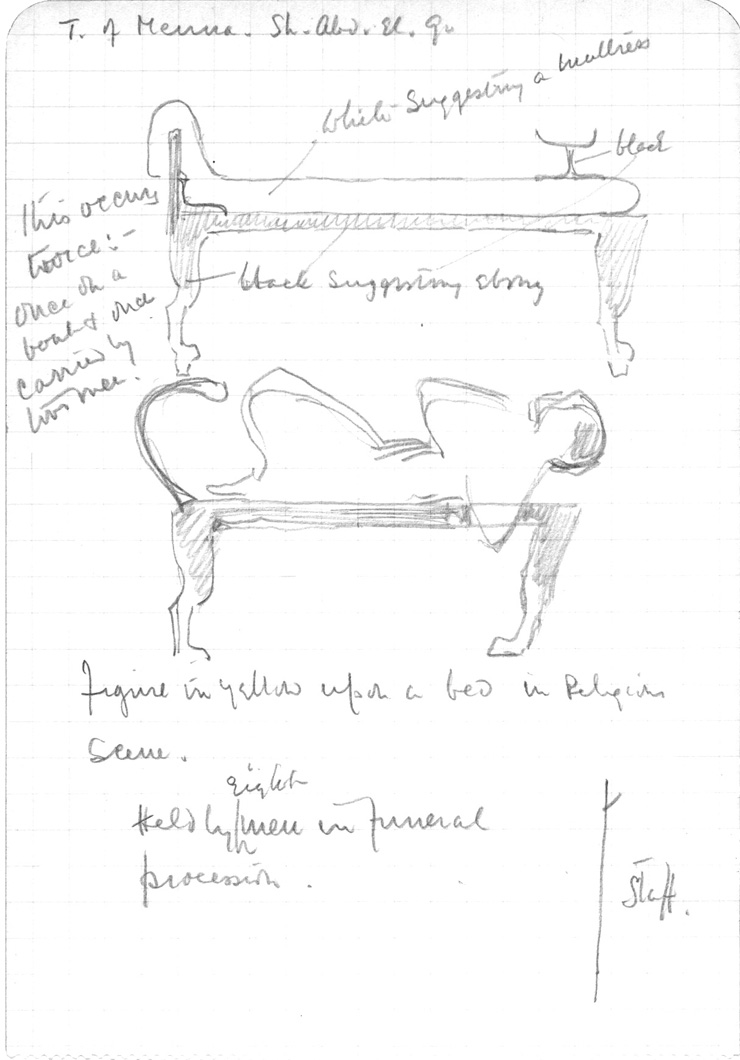 T. of Menna. Sh. Abd. El. Q.
White suggesting a mattress
black
This occurs
twice:-
once on a
boat & once
carried by
two men.
black suggesting ebony
Figure in yellow upon a bed in Religious
Scene.
eight
Held by men in Funeral
procession.
Staff.